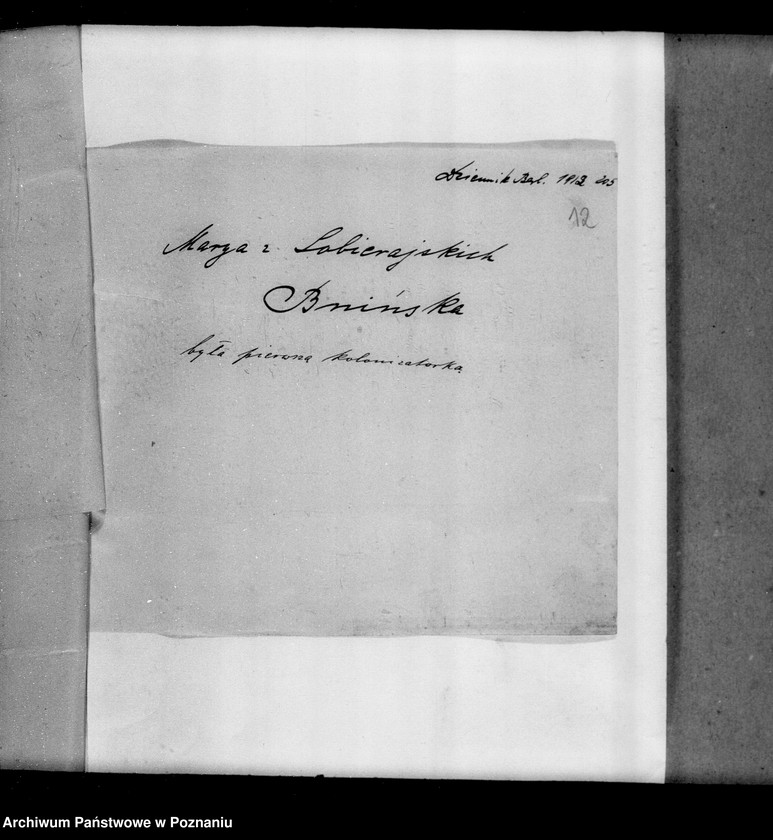 Dziennik Berl. 1912 205
12
Marya z Sobierajskich
Bnińska
była pierwszą kolonizatorką
Archiwum Państwowe w Poznaniu